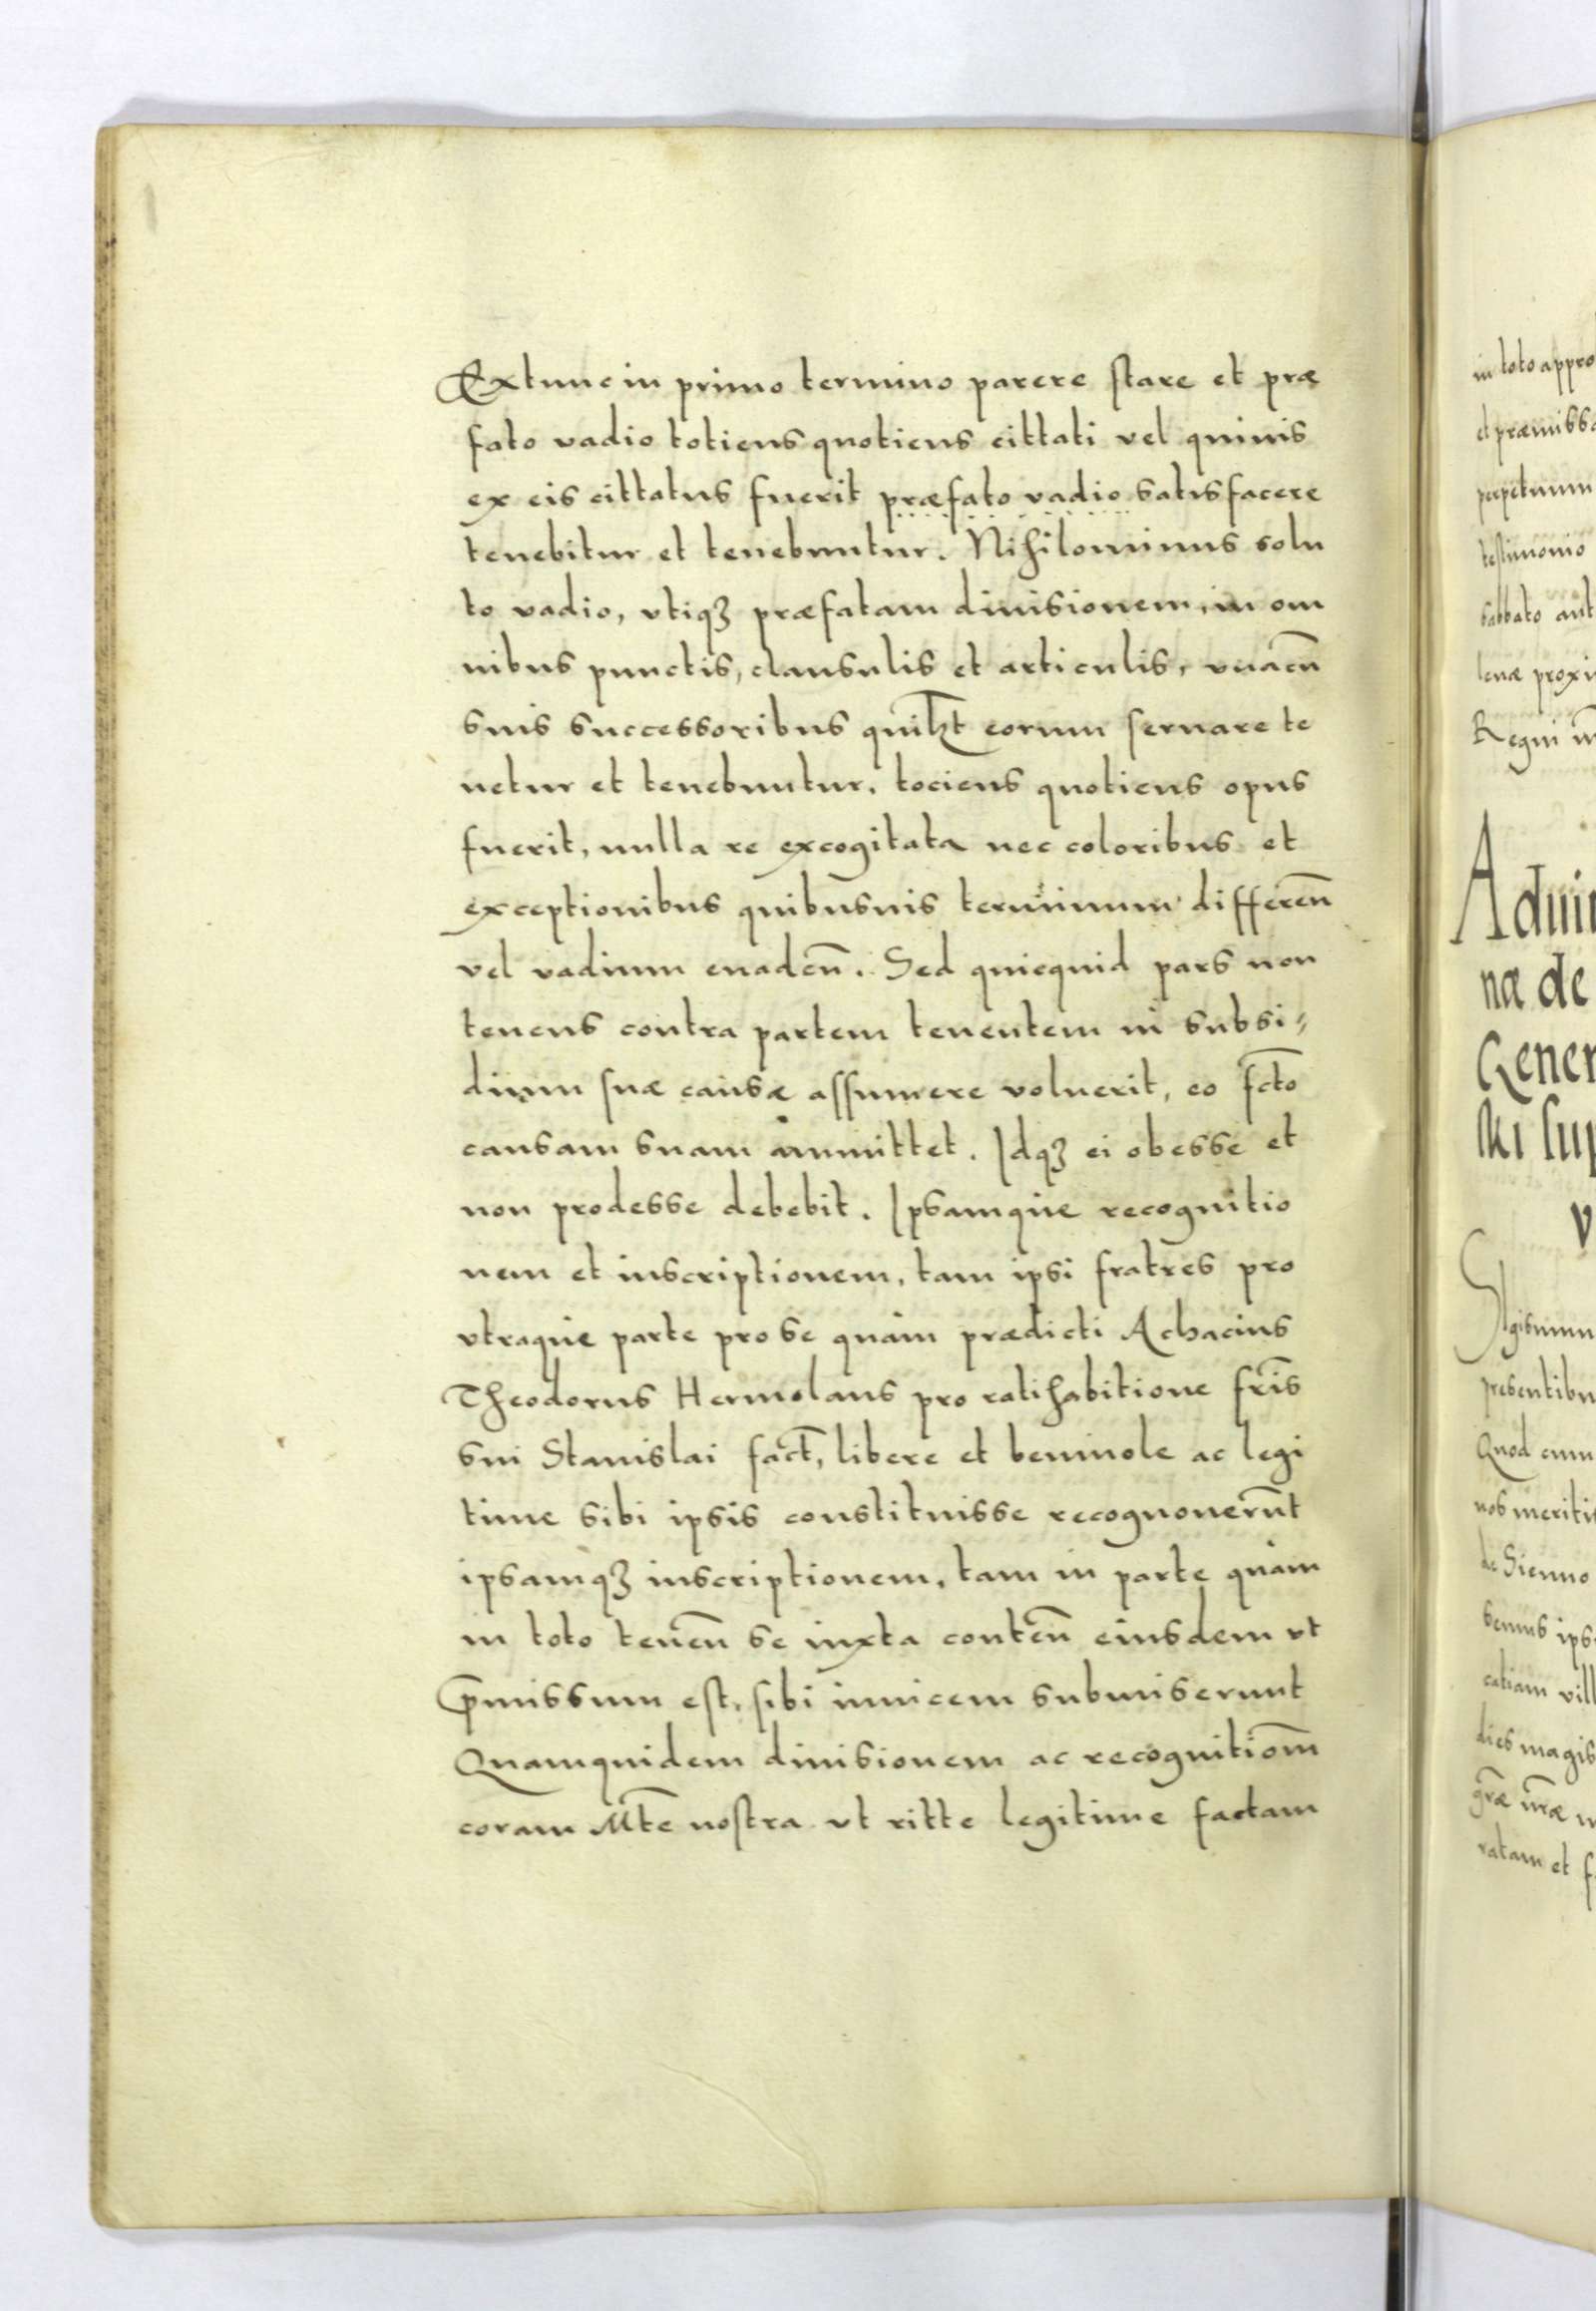 Extunc in primo termino parere stare et præ
fato vadio totiens quotiens cittati vel quiuis
ex eis cittatus fuerit præfato vadio satisfacere
tenebitur et tenebuntur. Nihilominus solu
to vadio, vtiqꝫ præfatam diuisionem, in om
nibus punctis, clausulis et articulis, vnacũ
suis successoribus quilꝫt eorum seruare te
netur et tenebuntur. tociens quotiens opus
fuerit, nulla re excogitata nec coloribus et
exceptionibus quibusuis terminum differeñ
vel vadium euadeñ. Sed quicquid pars non
tenens contra partem tenentem in subsi⸗
dium suæ causæ assumere voluerit, eo fcto
causam suam ammittet. Idqꝫ ei obesse et
non prodesse debebit. Ipsamque recognitio
nem et inscriptionem, tam ipsi fratres pro
vtraque parte pro se quam prædicti Achacius
Theodorus Hermolaus pro ratihabitione fris̄
sui Stanislai fact̄, libere et beniuole ac legi
time sibi ipsis constituisse recognouerũt
ipsamqꝫ inscriptionem, tam in parte quàm
in toto teneñ se iuxta conteñ eiusdem vt
p̄missum est, sibi inuicem submiserunt
Quamquidem diuisionem ac recognitiom̄
coram Mte̅ nostra vt ritte legitime factam
in toto appro
et præmissa
perpetuum
testimonio
sabbato ant
lenæ proxi
Regni
Adui
næ de
Gener
ski su
v
Sigismun
presentibu
Quod cum
nos meriti
de Sienno
semus ips
catiam vill
dies magis
gr̄æ nr̄æ
ratam et f